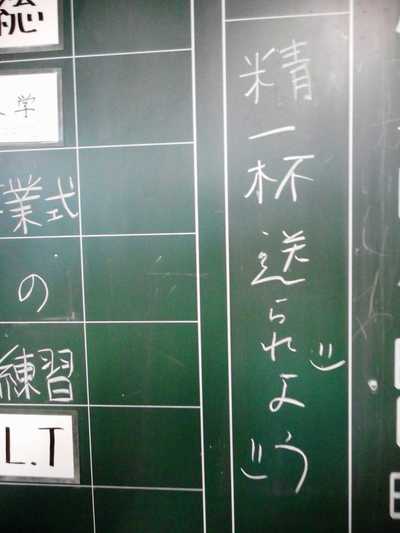 精一杯送られよう
総
学
業式
の
練習
L.T